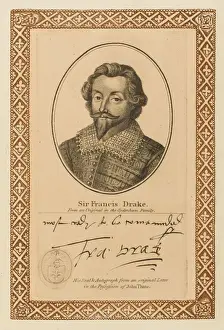 Sir Francis Drake.
From an Original in the
most redy to be commanded
Fra Drak
His Usual Autograph from an original Letter
in the Possession of John Thane.